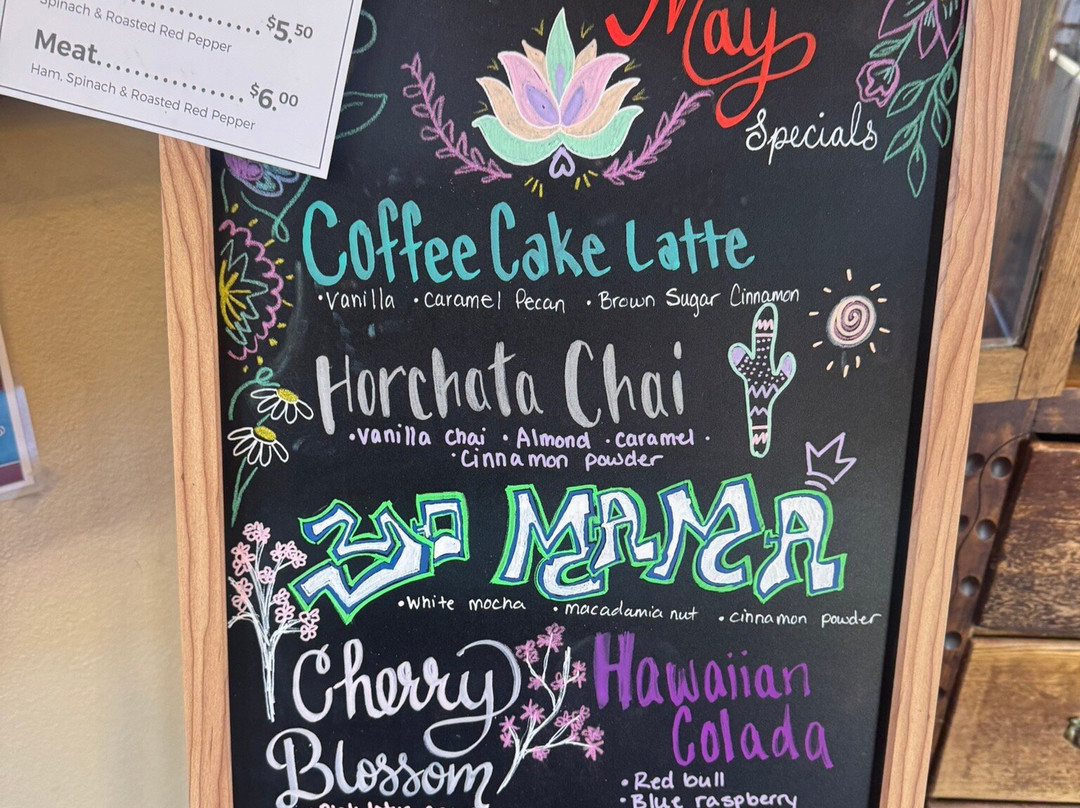 Spinach & Roasted Red Pepper
$5.50
Meat.................... $6.00
Ham, Spinach & Roasted Red Pepper
May
Specials
Coffee Cake Latte
•Vanilla •Caramel Pecan •Brown Sugar Cinnamon
Horchata Chai
•Vanilla chai •Almond •caramel •
•Cinnamon powder
YO MAMA
•White mocha •macadamia nut •cinnamon powder
Cherry
Blossom
Hawaiian
Colada
•Red bull
•Blue raspberry